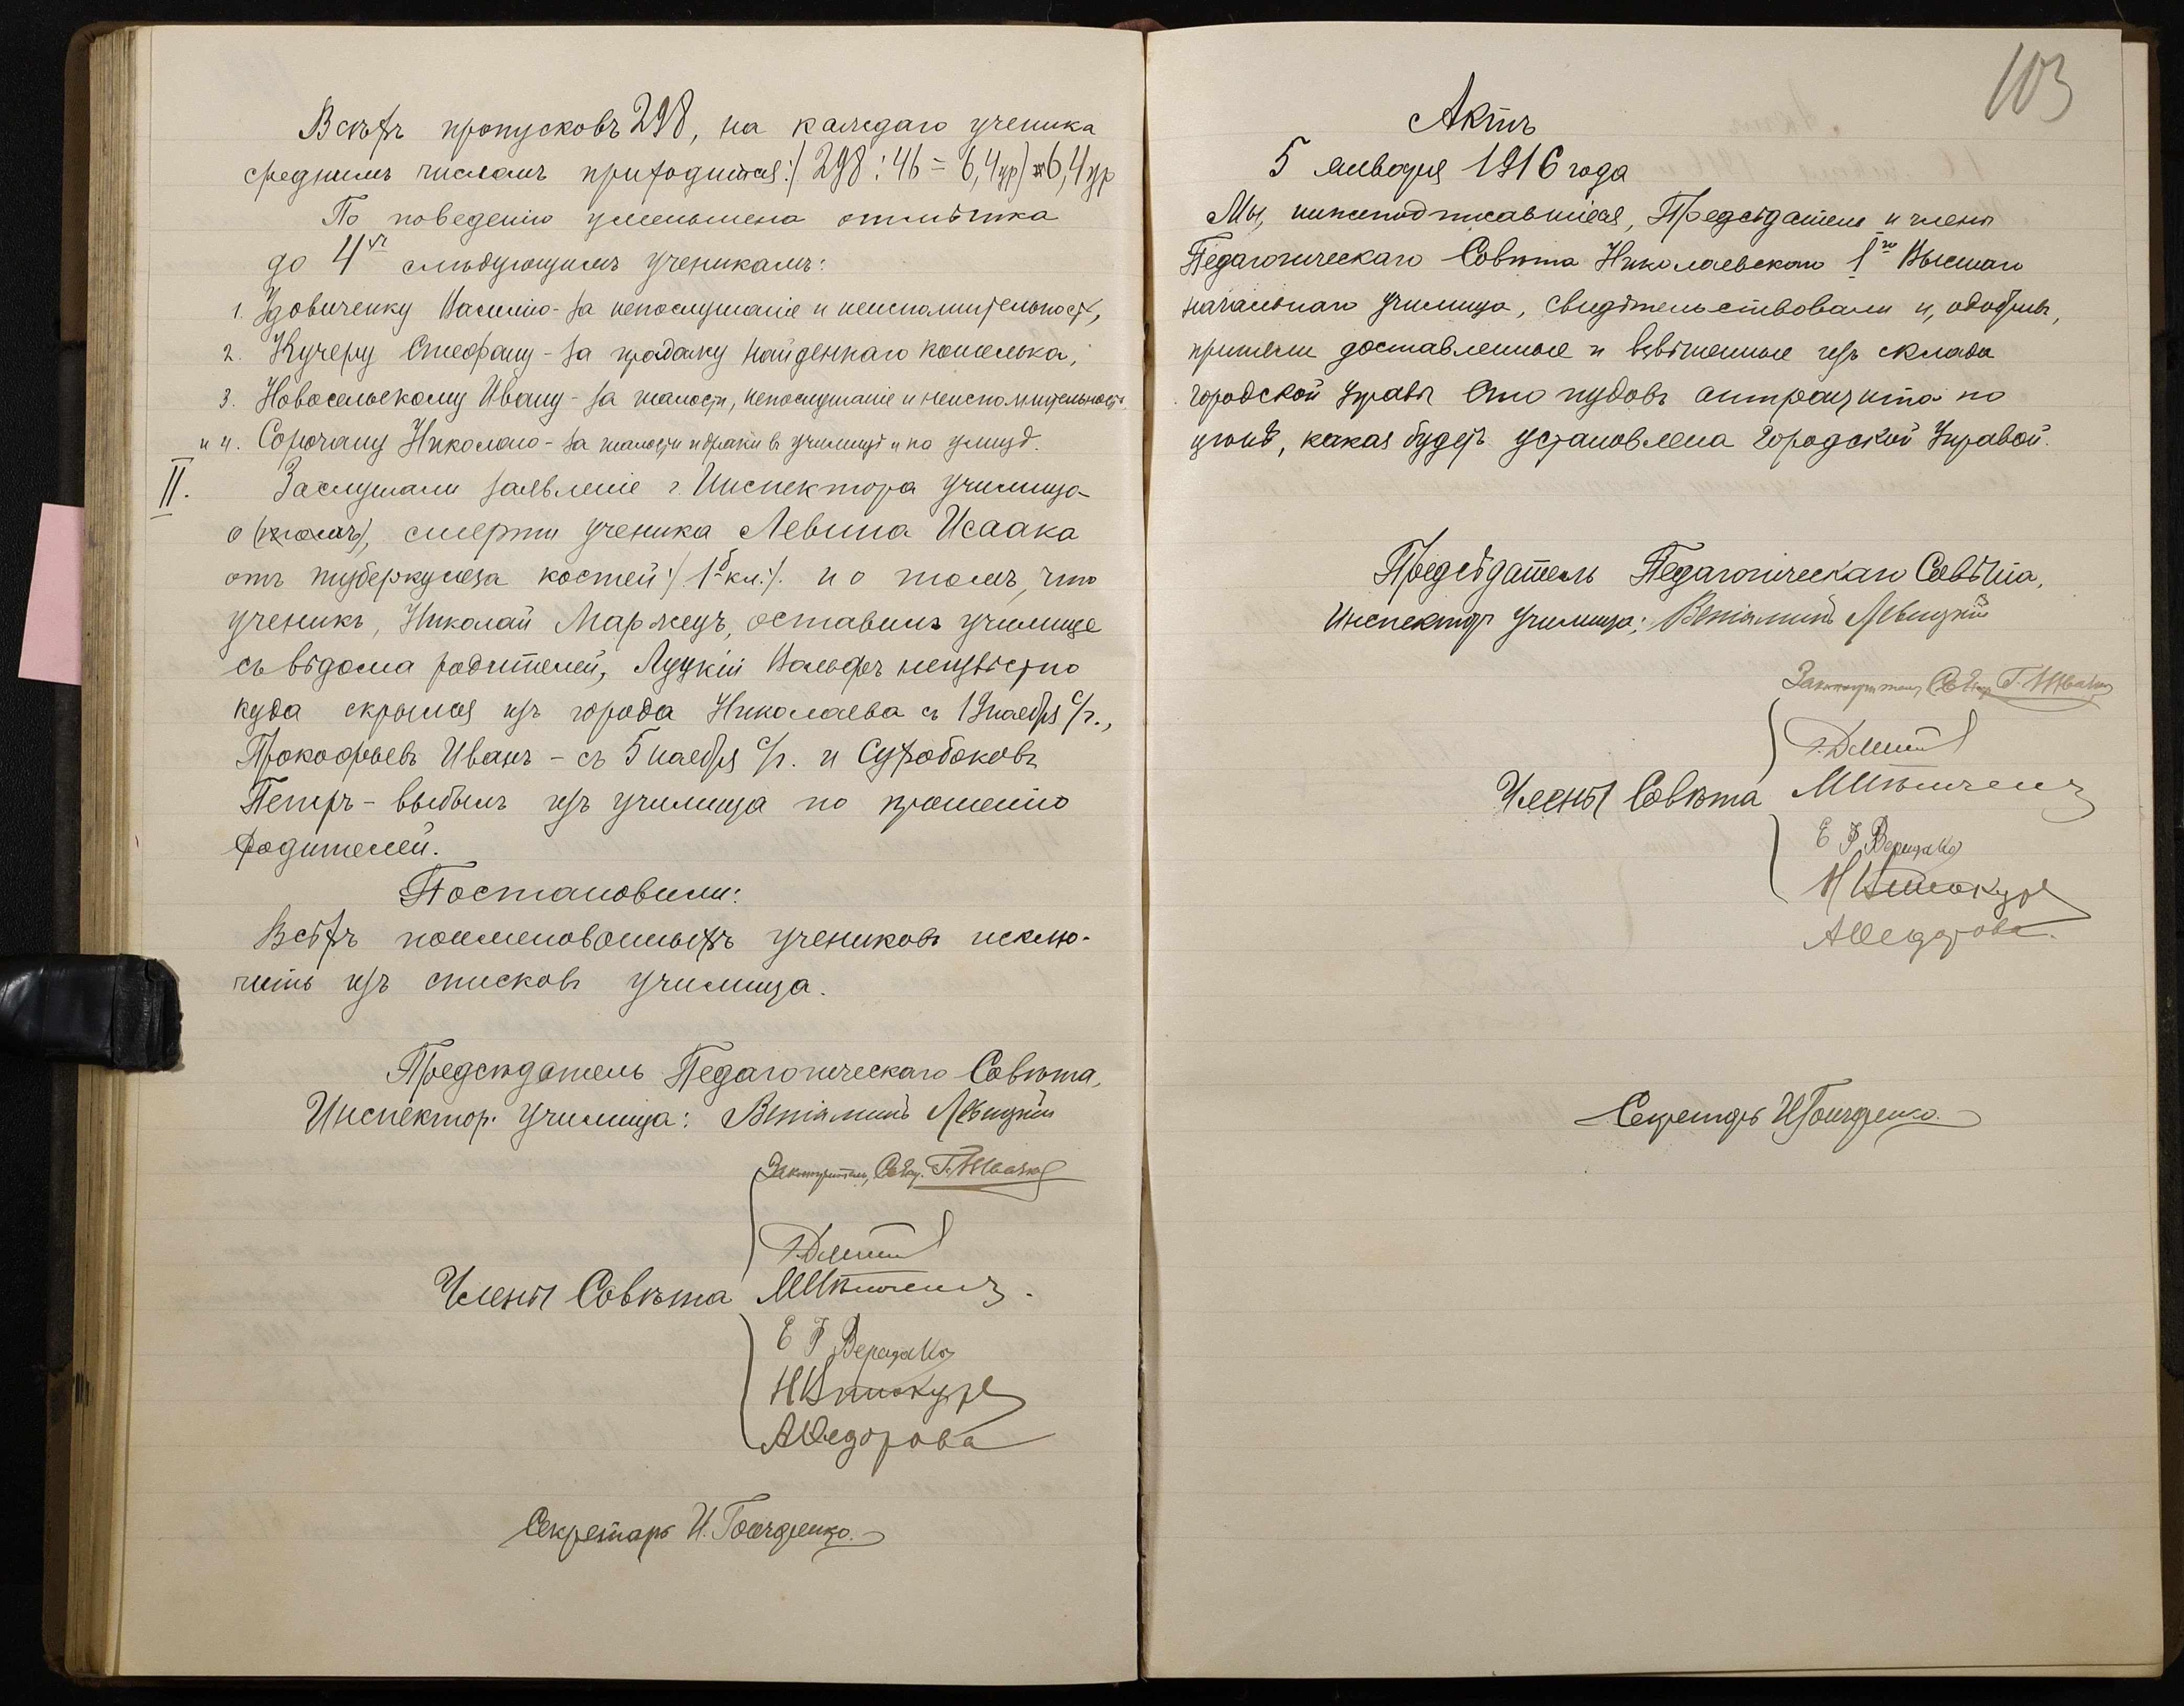 Всѣхъ пропусковъ 298, на каждаго ученика
среднимъ числомъ приходится :/ 298 : 46 = 6,4 ур/ 6,4 ур
По поведенію уменьшена отмѣтка
до 4хъ слѣдующимъ ученикамъ:
1. Удовиченку Василію - за непослушаніе и неисполнительность,
2. Кучеру Стефану - за продажу найденнаго кошелька,
3. Новосельскому Ивану - за шалости, непослушаніе и неисполнительность
и 4. Сорочану Николаю - за шалости и драки въ училищѣ и на улицѣ.
II. Заслушали заявленіе г. Инспектора училища
о смерти ученика Левина Исаака
отъ туберкулеза костей :/ 1б кл. :/. и о томъ, что
ученикъ, Николай Маржецъ, оставилъ училище
съ вѣдома родителей, Луцкій Вольфъ неизвѣстно
куда скрылся изъ города Николаева съ ноября с/г.,
Прокофьевъ Иванъ - съ 5 ноября с/г. и Сухобоковъ
Петръ - выбылъ изъ училища по прошенію
родителей.
Постановили:
Всѣхъ поименованныхъ учениковъ исклю-
чить изъ списковъ училища.
Предсѣдатель Педагогическаго Совѣта,
Инспекторъ училища: Веніаминъ Левицкій
Законоучитель, Свящ. Г.
Члены Совѣта
Е
Н Винокуръ
А Федорова
Секретарь И. Гончаренко.
103
Актъ
5 января 1916 года
Мы, нижеподписавшіеся, Предсѣдатель и члены
Педагогическаго Совѣта Николаевскаго 1го Высшаго
начальнаго училища, свидѣтельствовали и, одобривъ,
приняли доставленные и взвѣшенные изъ склада
Городской Управы сто пудовъ антрацита по
цѣнѣ, какая будетъ установлена Городской Управой.
Предсѣдатель Педагогическаго Совѣта,
Инспекторъ училища: Веніаминъ Левицкій
Законоучитель, Свящ. Г.
Члены Совѣта
Е
Н Винокуръ
А Федорова.
Секретарь И Гончаренко.